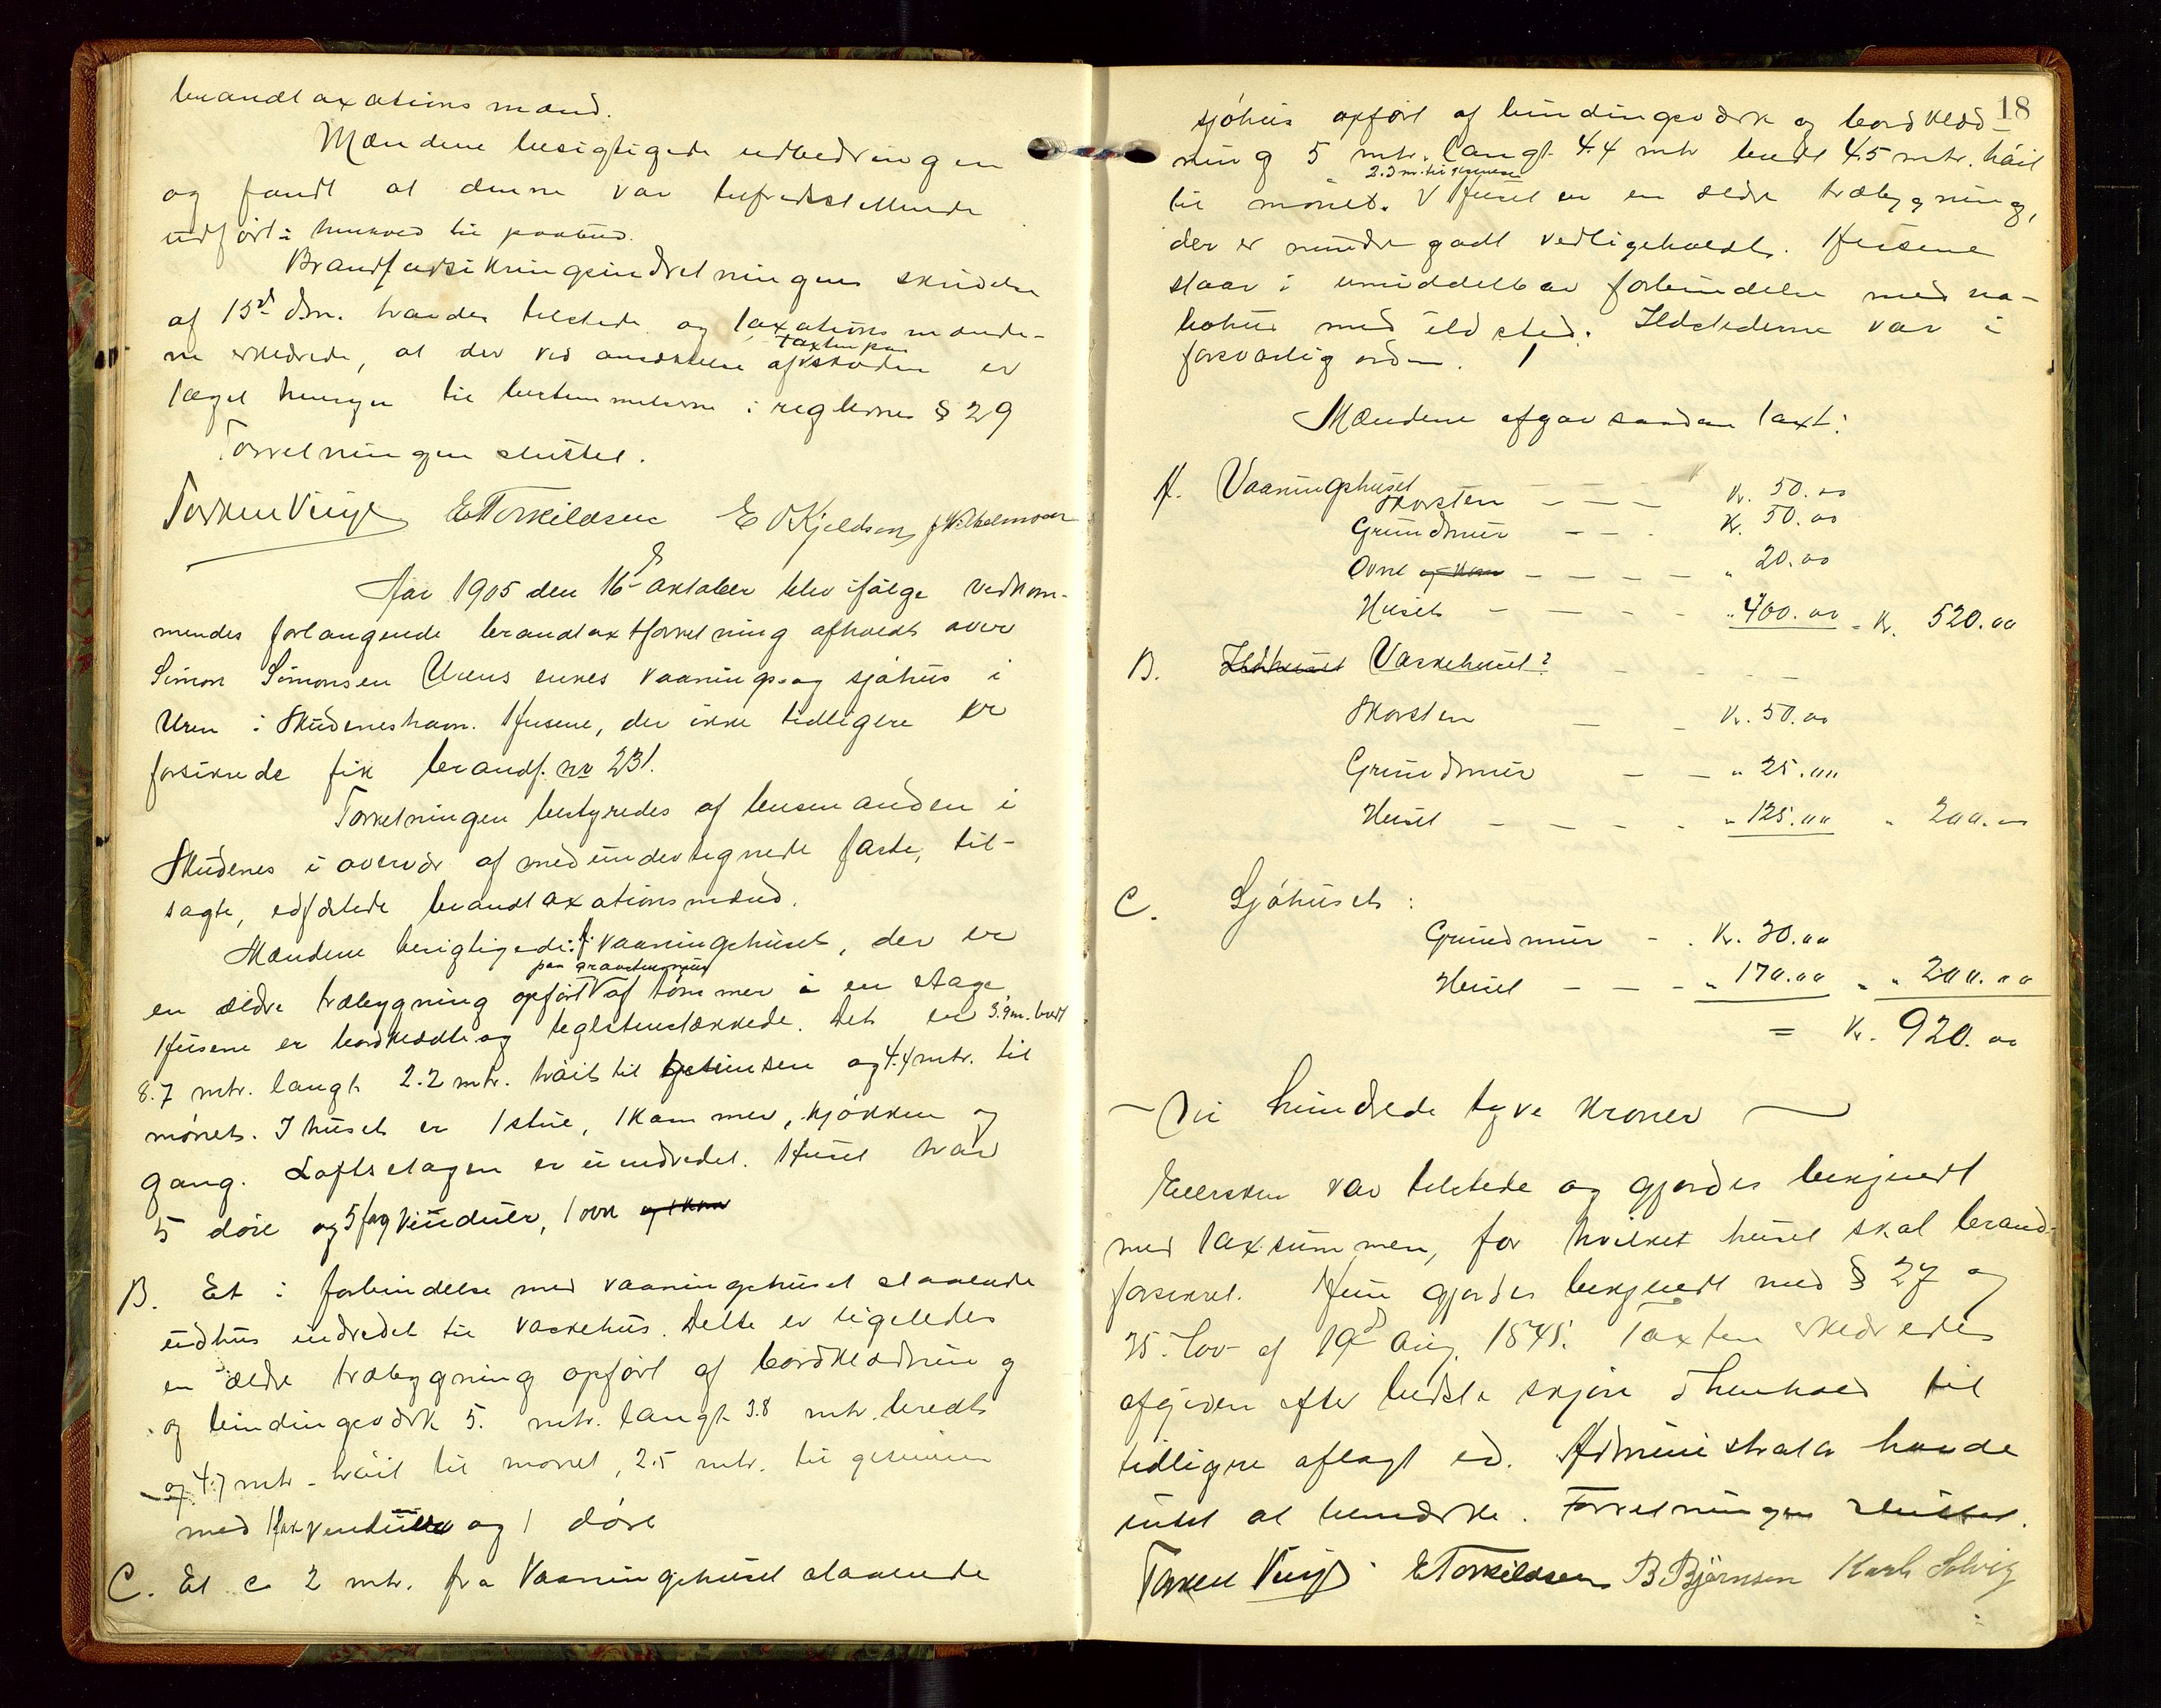 brandtaxationsmænd.
Mændene besigtigede udbedringen
og fandt at denne var tilfredsstillende
udført i henhold til paabud.
Brandforsikringsindretningens skrivelse
af 15de dsm. havdes tilstede og taxationsmænde-
taxten paa
ne erklærede, at der ved ansættelse af skaden er
taget hensyn til bestemmelserne i reglernes § 29
Forretningen sluttet.
Torkell Vinje E Torkildsen E O Kjeldsen J Vilhelmsen
Aar 1905 den 16de oktober blev ifølge vedkom-
mendes forlangende brandtaxtforretning afholdt over
Simon Simonsen Urens enkes vaanings og sjøhus i
Uren i Skudeneshavn. Husene, der ikke tidligere er
forsikrede fik brandf. no 231.
Forretningen bestyredes af lensmanden i
Skudenes i overvær af medundertegnede faste, til-
sagte, edfæstede brandtaxationsmænd.
Mændene besigtigede: A: vaaningshuset, der er
paa graastensmur
en ældre træbygning opført af tømmer i en etage
Husene er bordklædte og teglstenstækkede. Det er 5.9 m. bredt
8.7 mtr. langt 2.2 mtr. høit til gesimsen og 4.4 mtr. til
mønet. I huset er 1 stue, 1 kammer, kjøkken og
gang. Loftsetagen er uindredet. Huset har
5 døre og 5 fag vinduer, 1 ovn og 1 kom
B. Et i forbindelse med vaaningshuset staaende
udhus indredet til vaskehus. Dette er ligeledes
en ældre træbygning opført af bordklædning
og bindingsværk 5. mtr. langt 3.8 mtr. bredt
og 4.7 mtr. høit til mønet, 2.5 mtr. til gesimsen
med 1 fag vinduer og 1 døre
C. Et ca 2 mtr. fra Vaaningshuset staaende
18
sjøhus opført af bindingsværk og bordklæd-
ning 5 mtr. langt 4.4 mtr bredt 4.5 mtr. høit
2.3 m. til gesimsen
til mønet. Huset er en ældre træbygning,
der er mindre godt vedligeholdt. Husene
staar i umiddelbar forbindelse med na-
bohus med ildsted. Ildstederne var i
forsvarlig orden.
Mændene afgav saadan taxt:
A. Vaaningshuset
Skorsten - - - Kr. 50.00
Grundmur - - - Kr. 50.00
Ovne og kom - - - - " 20.00
Huset - - - - " 400.00 - Kr. 520.00
B. Ildhuset Vaskehuset:
Skorsten - - Kr. 50.00
Grundmur - - " 25.00
Huset - - - - " 125.00 " 200.00
C. Sjøhuset:
Grundmur - - Kr. 30.00
Huset - - - " 170.00 - " 200.00
= Kr. 920.00
- Ni hundrede tyve kroner -
Eiersken var tilstede og gjordes bekjendt
med taxsummen, for hvilket huset skal brand-
forsikret. Hun gjordes bekjendt med § 27 og
35. lov af 19de Aug. 1845. Taxten erklæredes
afgiven efter bedste skjøn i henhold til
tidligere aflagt ed. Administrator havde
intet at bemærke. Forretningen sluttet.
Torkell Vinje E Torkildsen B Bjørnsen Karl Solvig